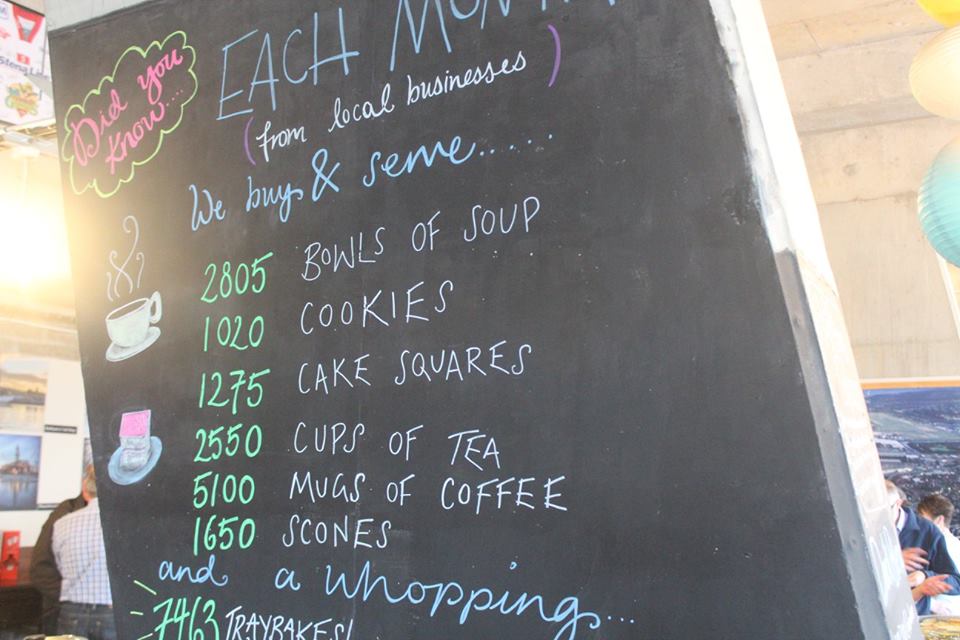 Did you
know....
EACH MONTH
(from local businesses)
We buy & serve.....
2805 BOWLS OF SOUP
1020 COOKIES
1275 CAKE SQUARES
2550 CUPS OF TEA
5100 MUGS OF COFFEE
1650 SCONES
and a whopping...
7463 TRAYBAKES!
Stena Line